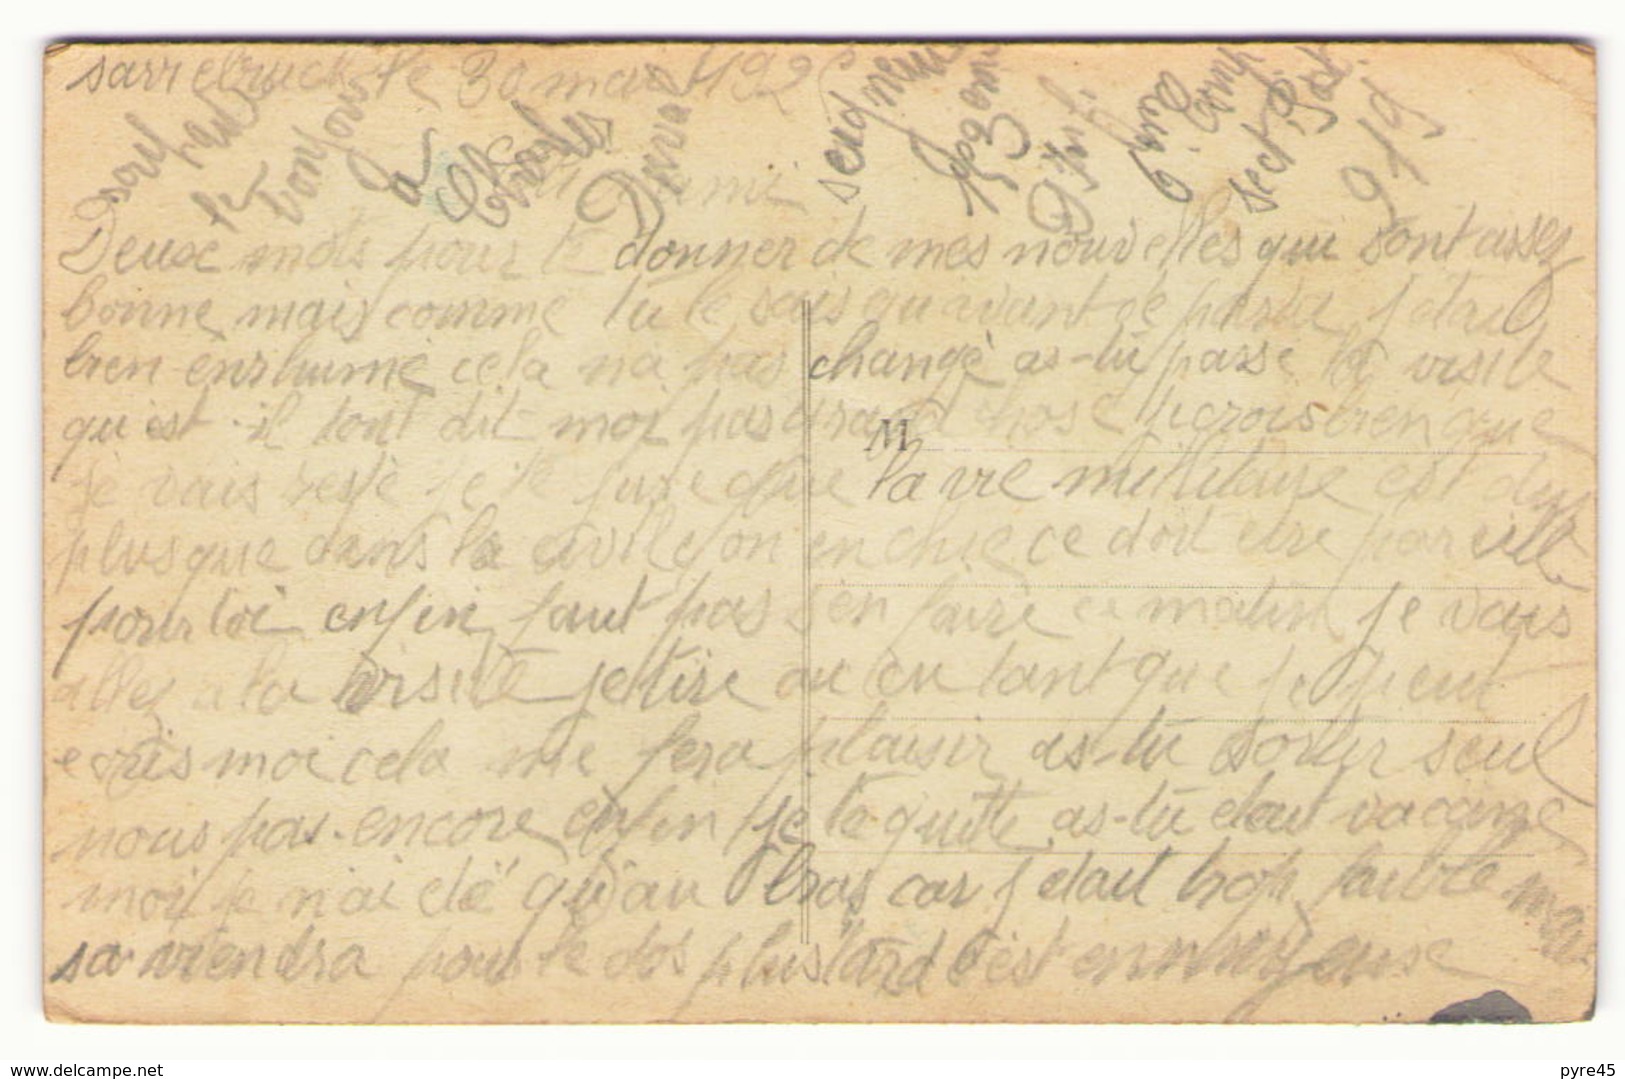 sarrebruck le 30 mai 192
le bonjour à Charles Duval
153 eme
D'Inf.
Comp
sect Post.
919
ami
Deux mots pour te donner de mes nouvelles qui sont assez
bonne mais comme tu le sais qu'avant de partir j'etait
bien enrhumé cela na pas changé as-tu passe la visite
qu'est-il tont dit moi pas grand chose je crois bien que
je vais resté je te jure que la vie militaire est dur
plus que dans la civile on en chie ce doit etre pareille
pour toi enfin faut pas s'en faire ce matin je vais
aller a la visite je tire au cu tant que je peut
ecris moi cela me fera plaisir as-tu sortir seul
nous pas encore enfin je te quitte as-tu etait vacciné
moi je n'ai eté qu'au bras car j'etait trop faible mai
sa viendra pour le dos plus tard c'est
M
delcampe.net
pyre45